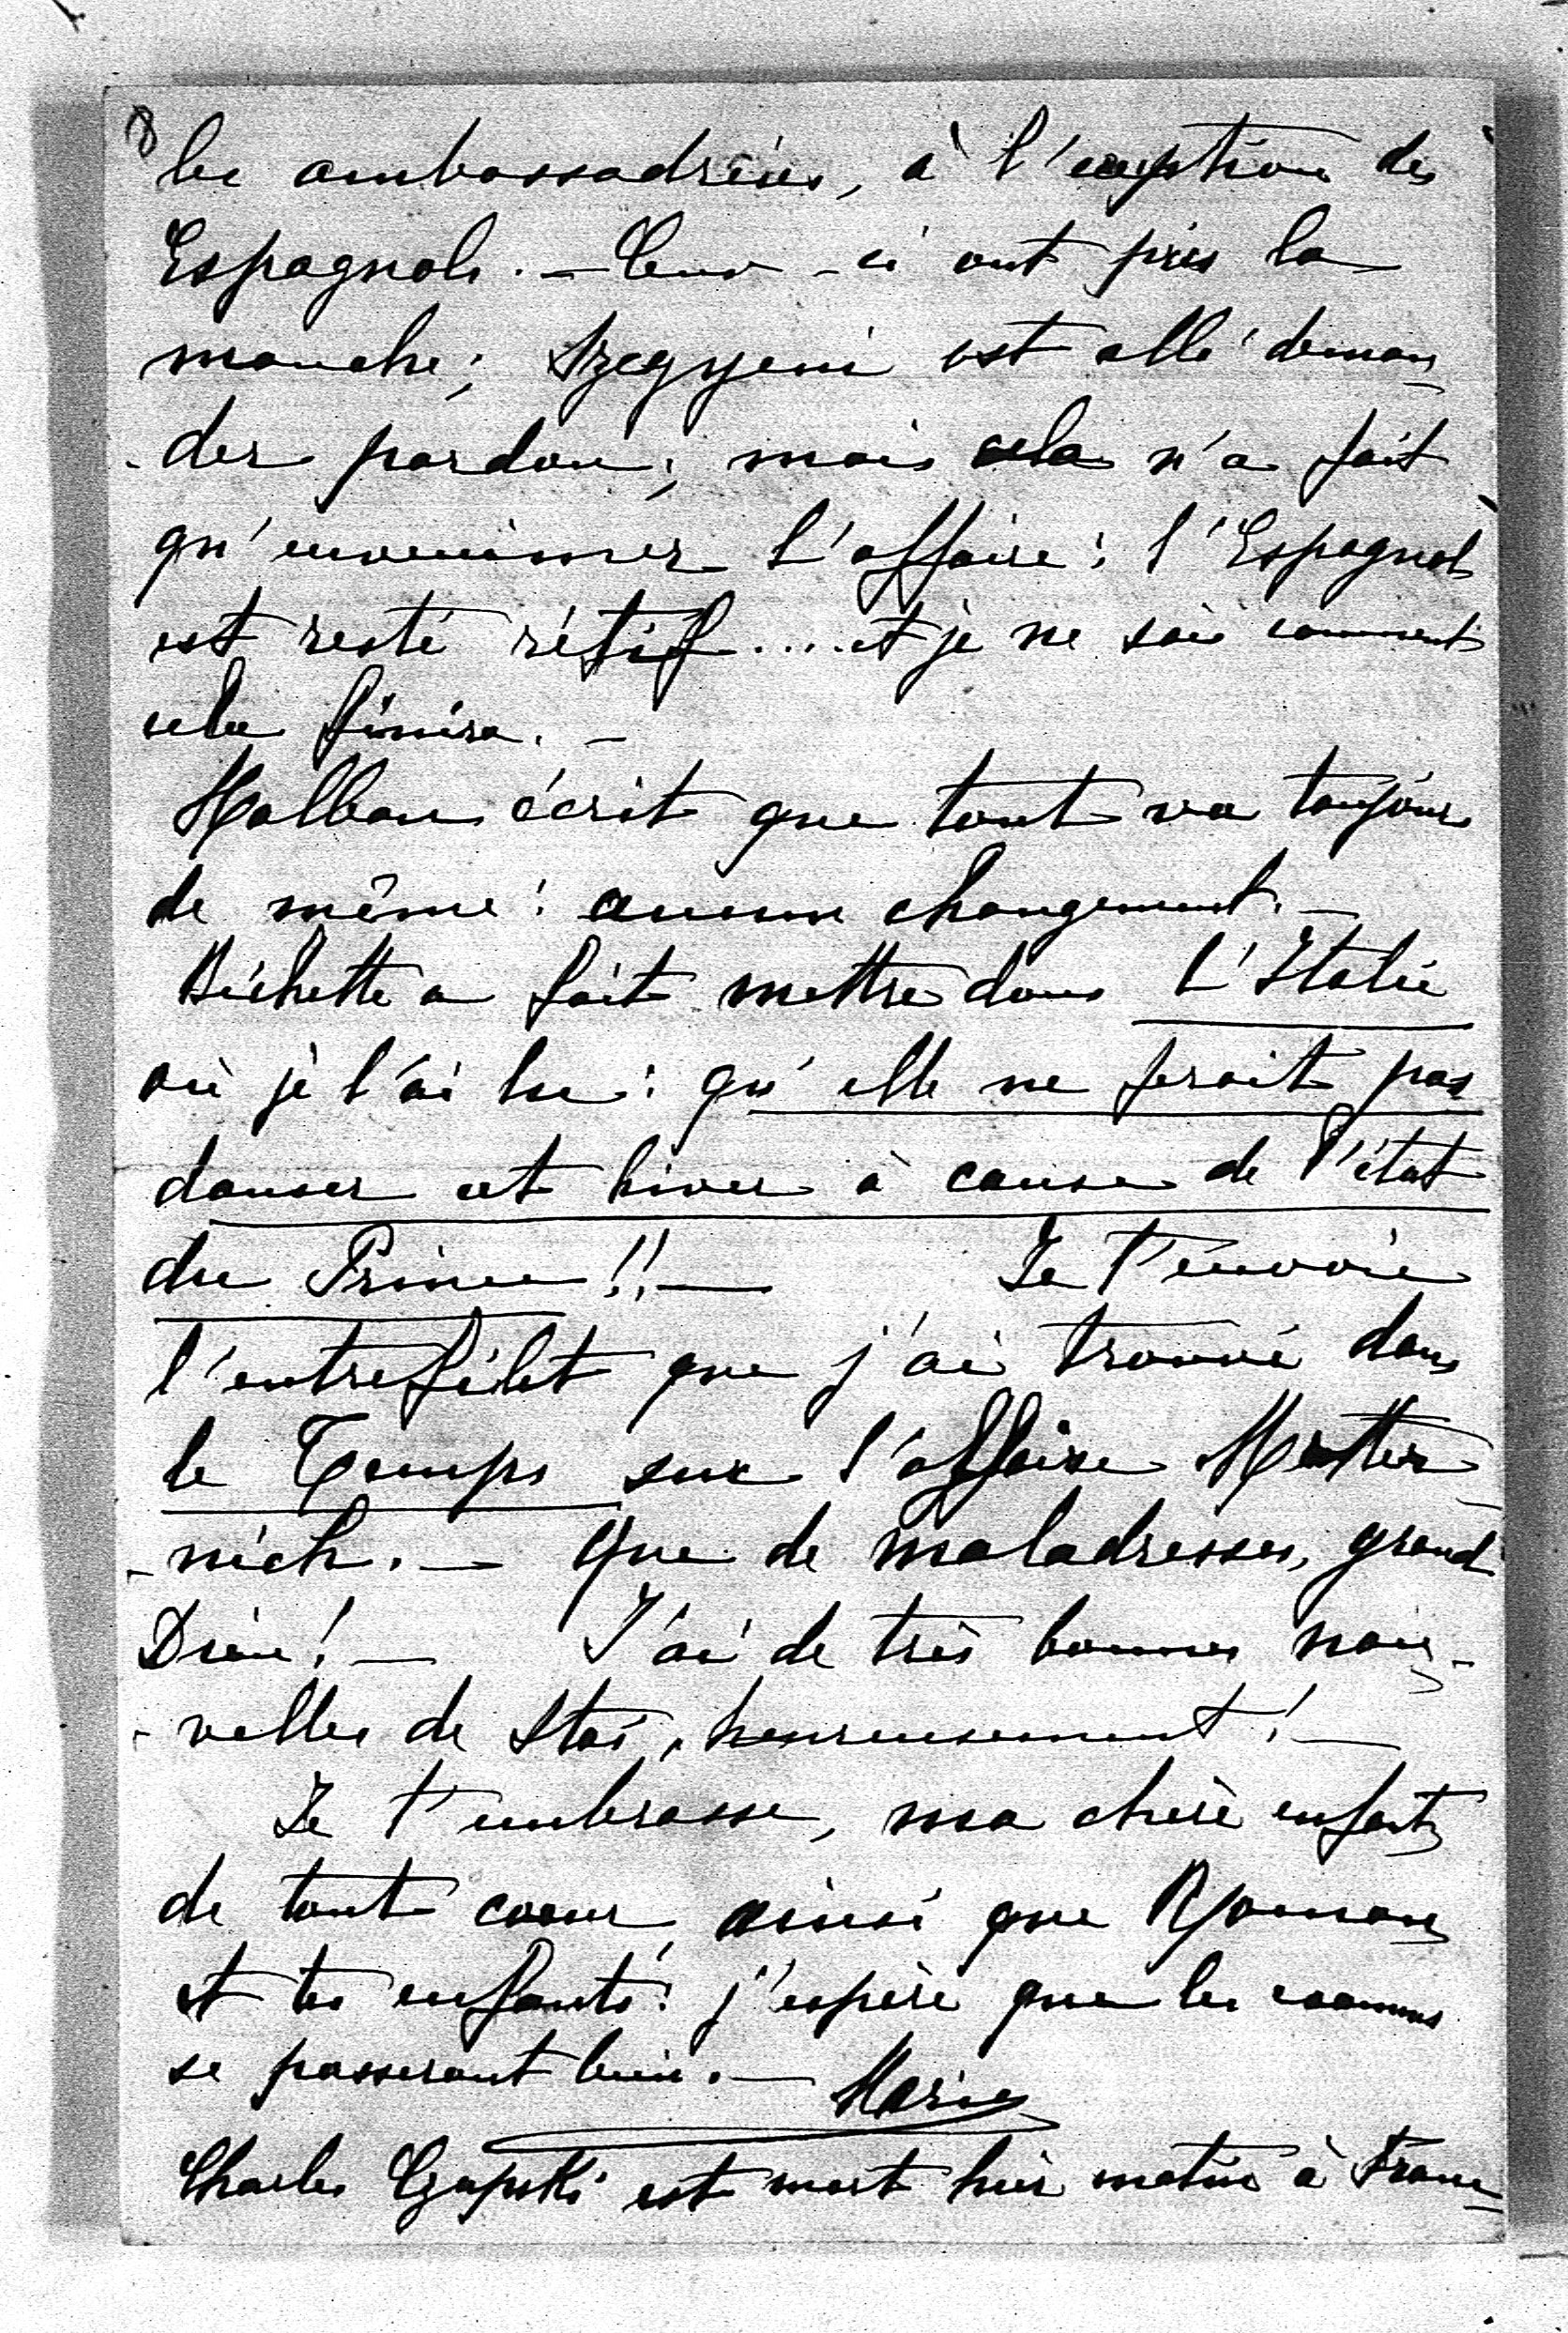 8
les ambassadrices, à l'exception des
Espagnols. — Ceux-ci ont pris la
mouche; Szegyeni est allé deman-
-der pardon; mais cela n'a fait
qu'envenimer l'affaire: l'Espagnol
est resté rétif.... et je ne sais comment
cela finira. —
Malban écrit que tout va toujours
de même: aucun changement. —
Bichette a fait mettre dans L'Italie
où je l'ai lu: qu'elle ne ferait pas
danser cet hiver à cause de l'état
du Prince!! — Je t'envoie
l'entrefilet que j'ai trouvé dans
le Temps sur l'affaire Metter-
-nich. — Que de maladresses, grand
Dieu! — J'ai de très bonnes nou-
-velles de Stas, heureusement! —
Je t'embrasse, ma chère enfant,
de tout coeur, ainsi que Roman
et tes enfants: j'espère que les examens
se passeront bien. — Marie
Charles Czapski est mort hier matin à Franc-